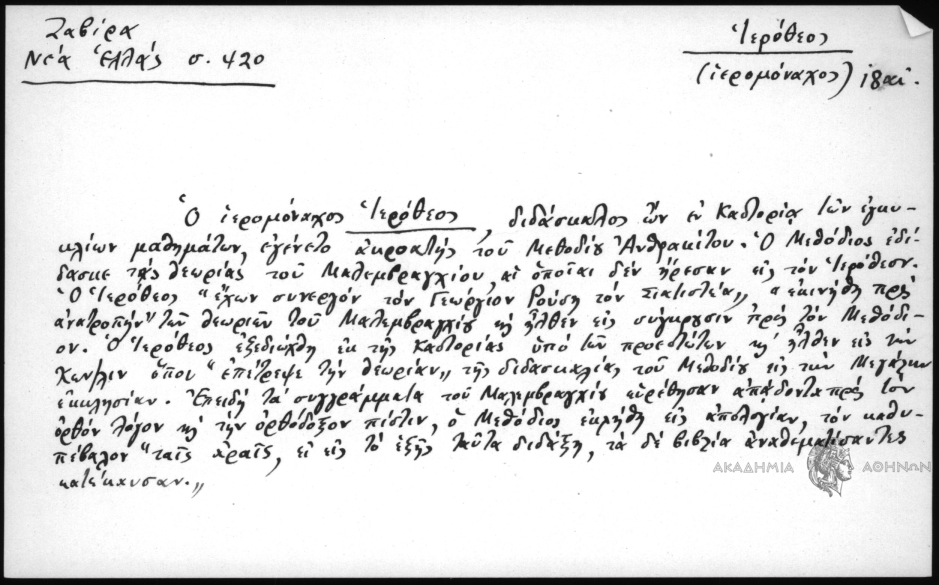 Ζαβίρα
Νέα Ἑλλάς σ. 420
Ἱερόθεος
(ἱερομόναχος) 18 αἰ.
Ὁ ἱερομόναχος Ἱερόθεος, διδάσκαλος ὢν ἐν Καστορίᾳ τῶν ἐγκυ-
κλίων μαθημάτων, ἐγένετο ἀκροατὴς τοῦ Μεθοδίου Ἀνθρακίτου. Ὁ Μεθόδιος ἐδί-
δασκε τὰς θεωρίας τοῦ Μαλεμβραγχίου, αἱ ὁποῖαι δὲν ἤρεσαν εἰς τὸν Ἱερόθεον.
Ὁ Ἱερόθεος "ἔχων συνεργὸν τὸν Γεώργιον Ρούση τὸν Σιατιστέα", "ἐκινήθη πρὸς
ἀνατροπὴν" τῶν θεωριῶν τοῦ Μαλεμβραγχίου κ̀ ἦλθεν εἰς σύγκρυσιν πρὸς τὸν Μεθόδι-
ον. Ὁ Ἱερόθεος ἐξεδιώχθη ἐκ τῆς Καστορίας ὑπὸ τῶν προεστώτων κ̀ ἦλθεν εἰς τὴν
Κων/λιν ὅπου "ἐπέτρεψε τὴν θεωρίαν" τῆς διδασκαλίας τοῦ Μεθοδίου εἰς τὴν Μεγάλην
ἐκκλησίαν. Ἐπειδὴ τὰ συγγράμματα τοῦ Μαλεμβραγχίου εὑρέθησαν ἀπᾴδοντα πρὸς τὸν
ὀρθὸν λόγον κ̀ τὴν ὀρθόδοξον πίστιν, ὁ Μεθόδιος ἐκλήθη εἰς ἀπολογίαν, τὸν καθυ-
πέβαλον "ταῖς ἀραῖς, εἰ εἰς τὸ ἑξῆς ταῦτα διδάξῃ, τὰ δὲ βιβλία ἀναθεματίσαντες
κατέκαυσαν."
ΑΚΑΔΗΜΙΑ ΑΘΗΝΩΝ